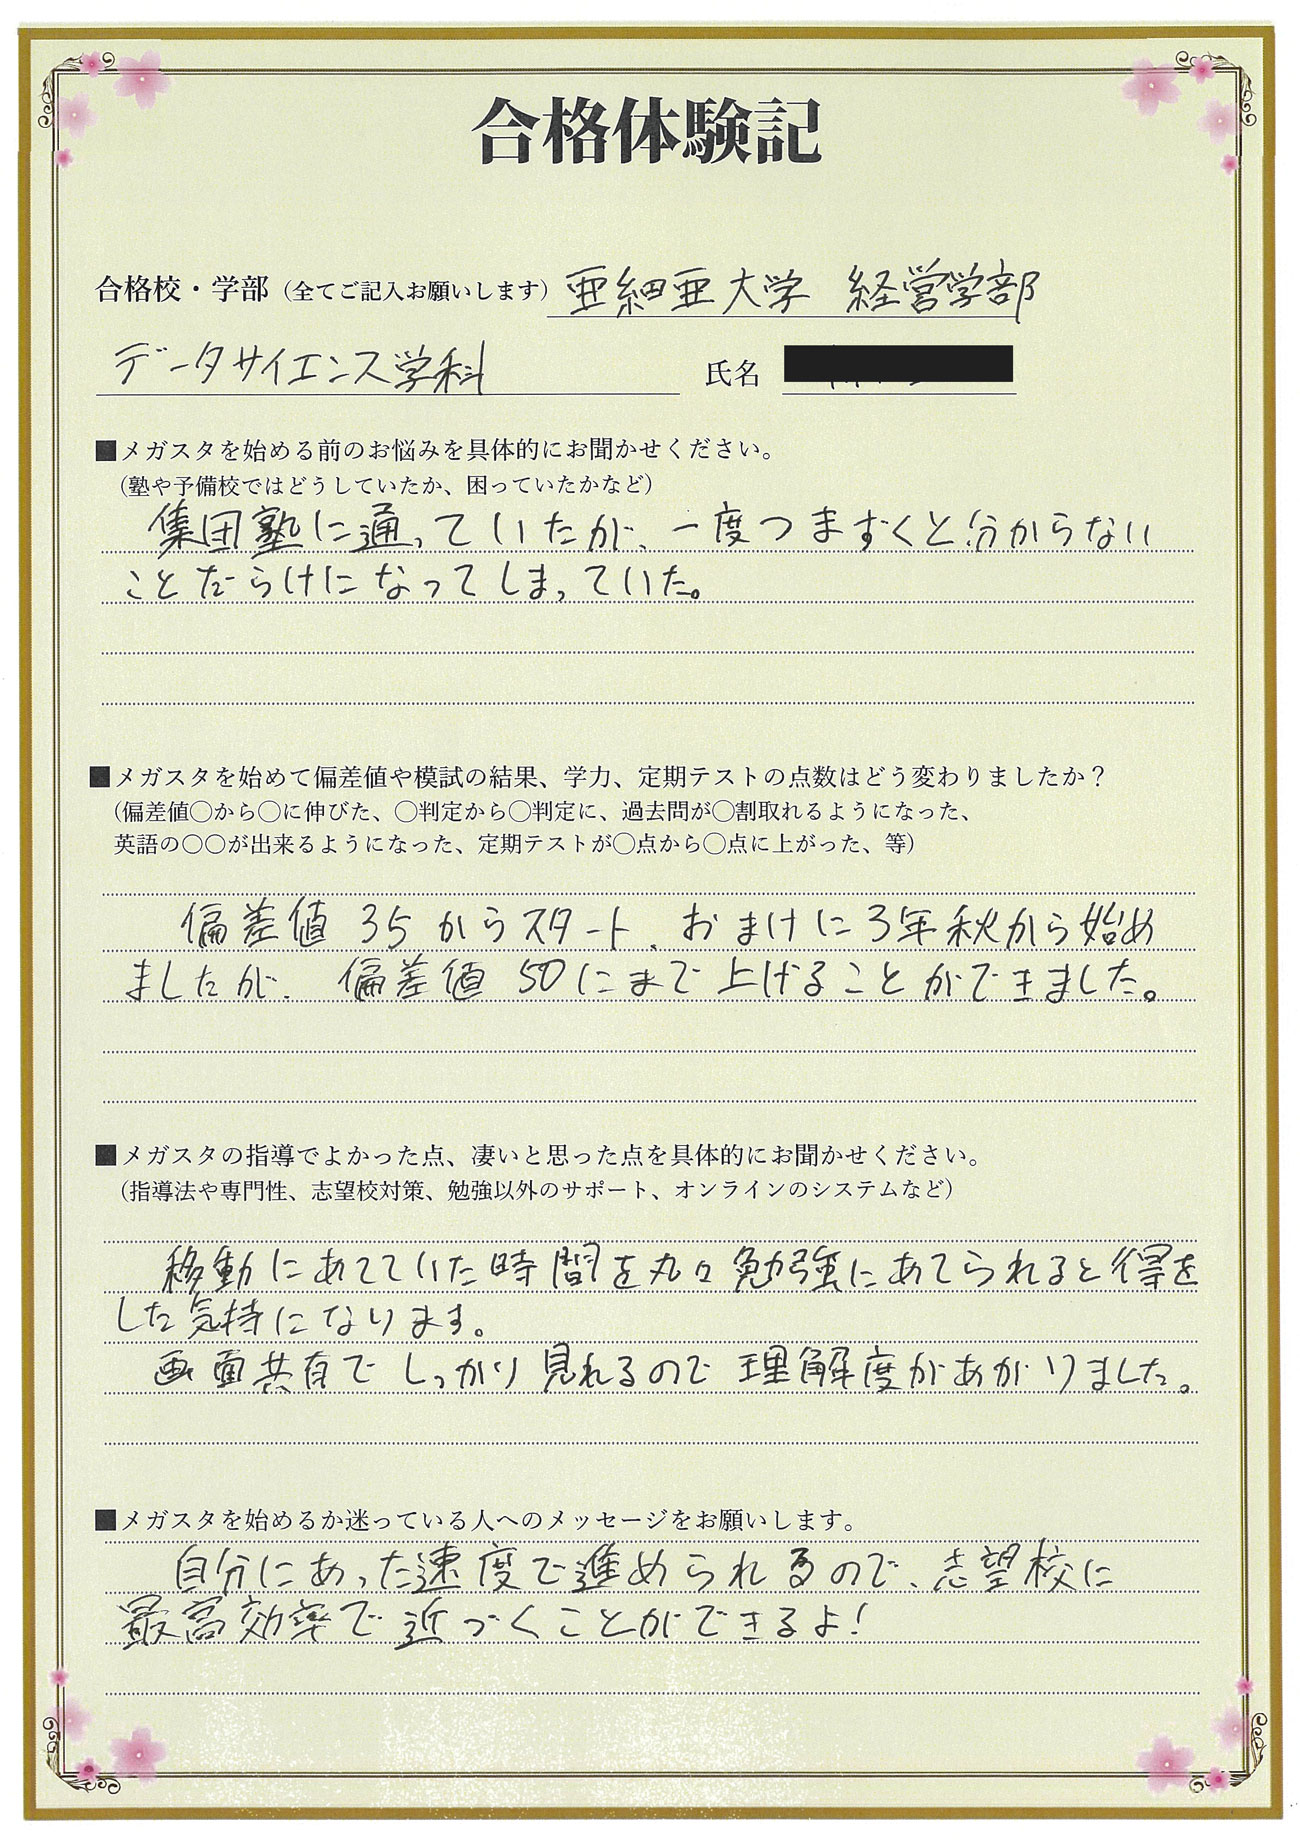 合格体験記
合格校・学部（全てご記入お願いします） 亜細亜大学 経営学部
データサイエンス学科 氏名
■メガスタを始める前のお悩みを具体的にお聞かせください。
（塾や予備校ではどうしていたか、困っていたかなど）
集団塾に通っていたが、一度つまずくと分からない
ことだらけになってしまっていた。
■メガスタを始めて偏差値や模試の結果、学力、定期テストの点数はどう変わりましたか？
（偏差値〇から〇に伸びた、〇判定から〇判定に、過去問が〇割取れるようになった、
英語の〇〇が出来るようになった、定期テストが〇点から〇点に上がった、等）
偏差値35からスタート、おまけに3年秋から始め
ましたが、偏差値50にまで上げることができました。
■メガスタの指導でよかった点、凄いと思った点を具体的にお聞かせください。
（指導法や専門性、志望校対策、勉強以外のサポート、オンラインのシステムなど）
移動にあてていた時間を丸々勉強にあてられると得を
した気持になります。
画面共有でしっかり見れるので理解度があがりました。
■メガスタを始めるか迷っている人へのメッセージをお願いします。
自分にあった速度で進められるので、志望校に
最高効率で近づくことができるよ！